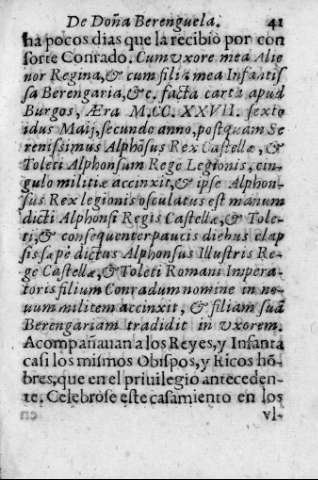 De Doña Berenguela. 41
ha pocos dias que la recibiò por con
sorte Conrado. Cum vxore mea Alie
nor Regina, & cum filia mea Infantis
sa Berengaria, &c. facta carta apud
Burgos, Æra M.CC. XXVII. sexto
idus Maij, secundo anno, postquam Se
renissimus Alphõsus Rex Castellæ, &
Toleti Alphonsum Rege Legionis, cin-
gulo militiæ accinxit, & ipse Alphon-
sus Rex legionis osculatus est manum
dicti Alphonsi Regis Castellæ, & Tole-
ti, & consequenter paucis diebus elap
sis sæpe dictus Alphonsus Illustris Re-
ge Castellæ, & Toleti Romani Impera-
toris filium Conradum nomine in no-
uum militem accinxit, & filiam suã
Berengariam tradidit in vxorem.
Acompañauan a los Reyes, y Infanta
casi los mismos Obispos, y Ricos hõ-
bres, que en el priuilegio anteceden-
te. Celebròse este casamiento en los
vl-